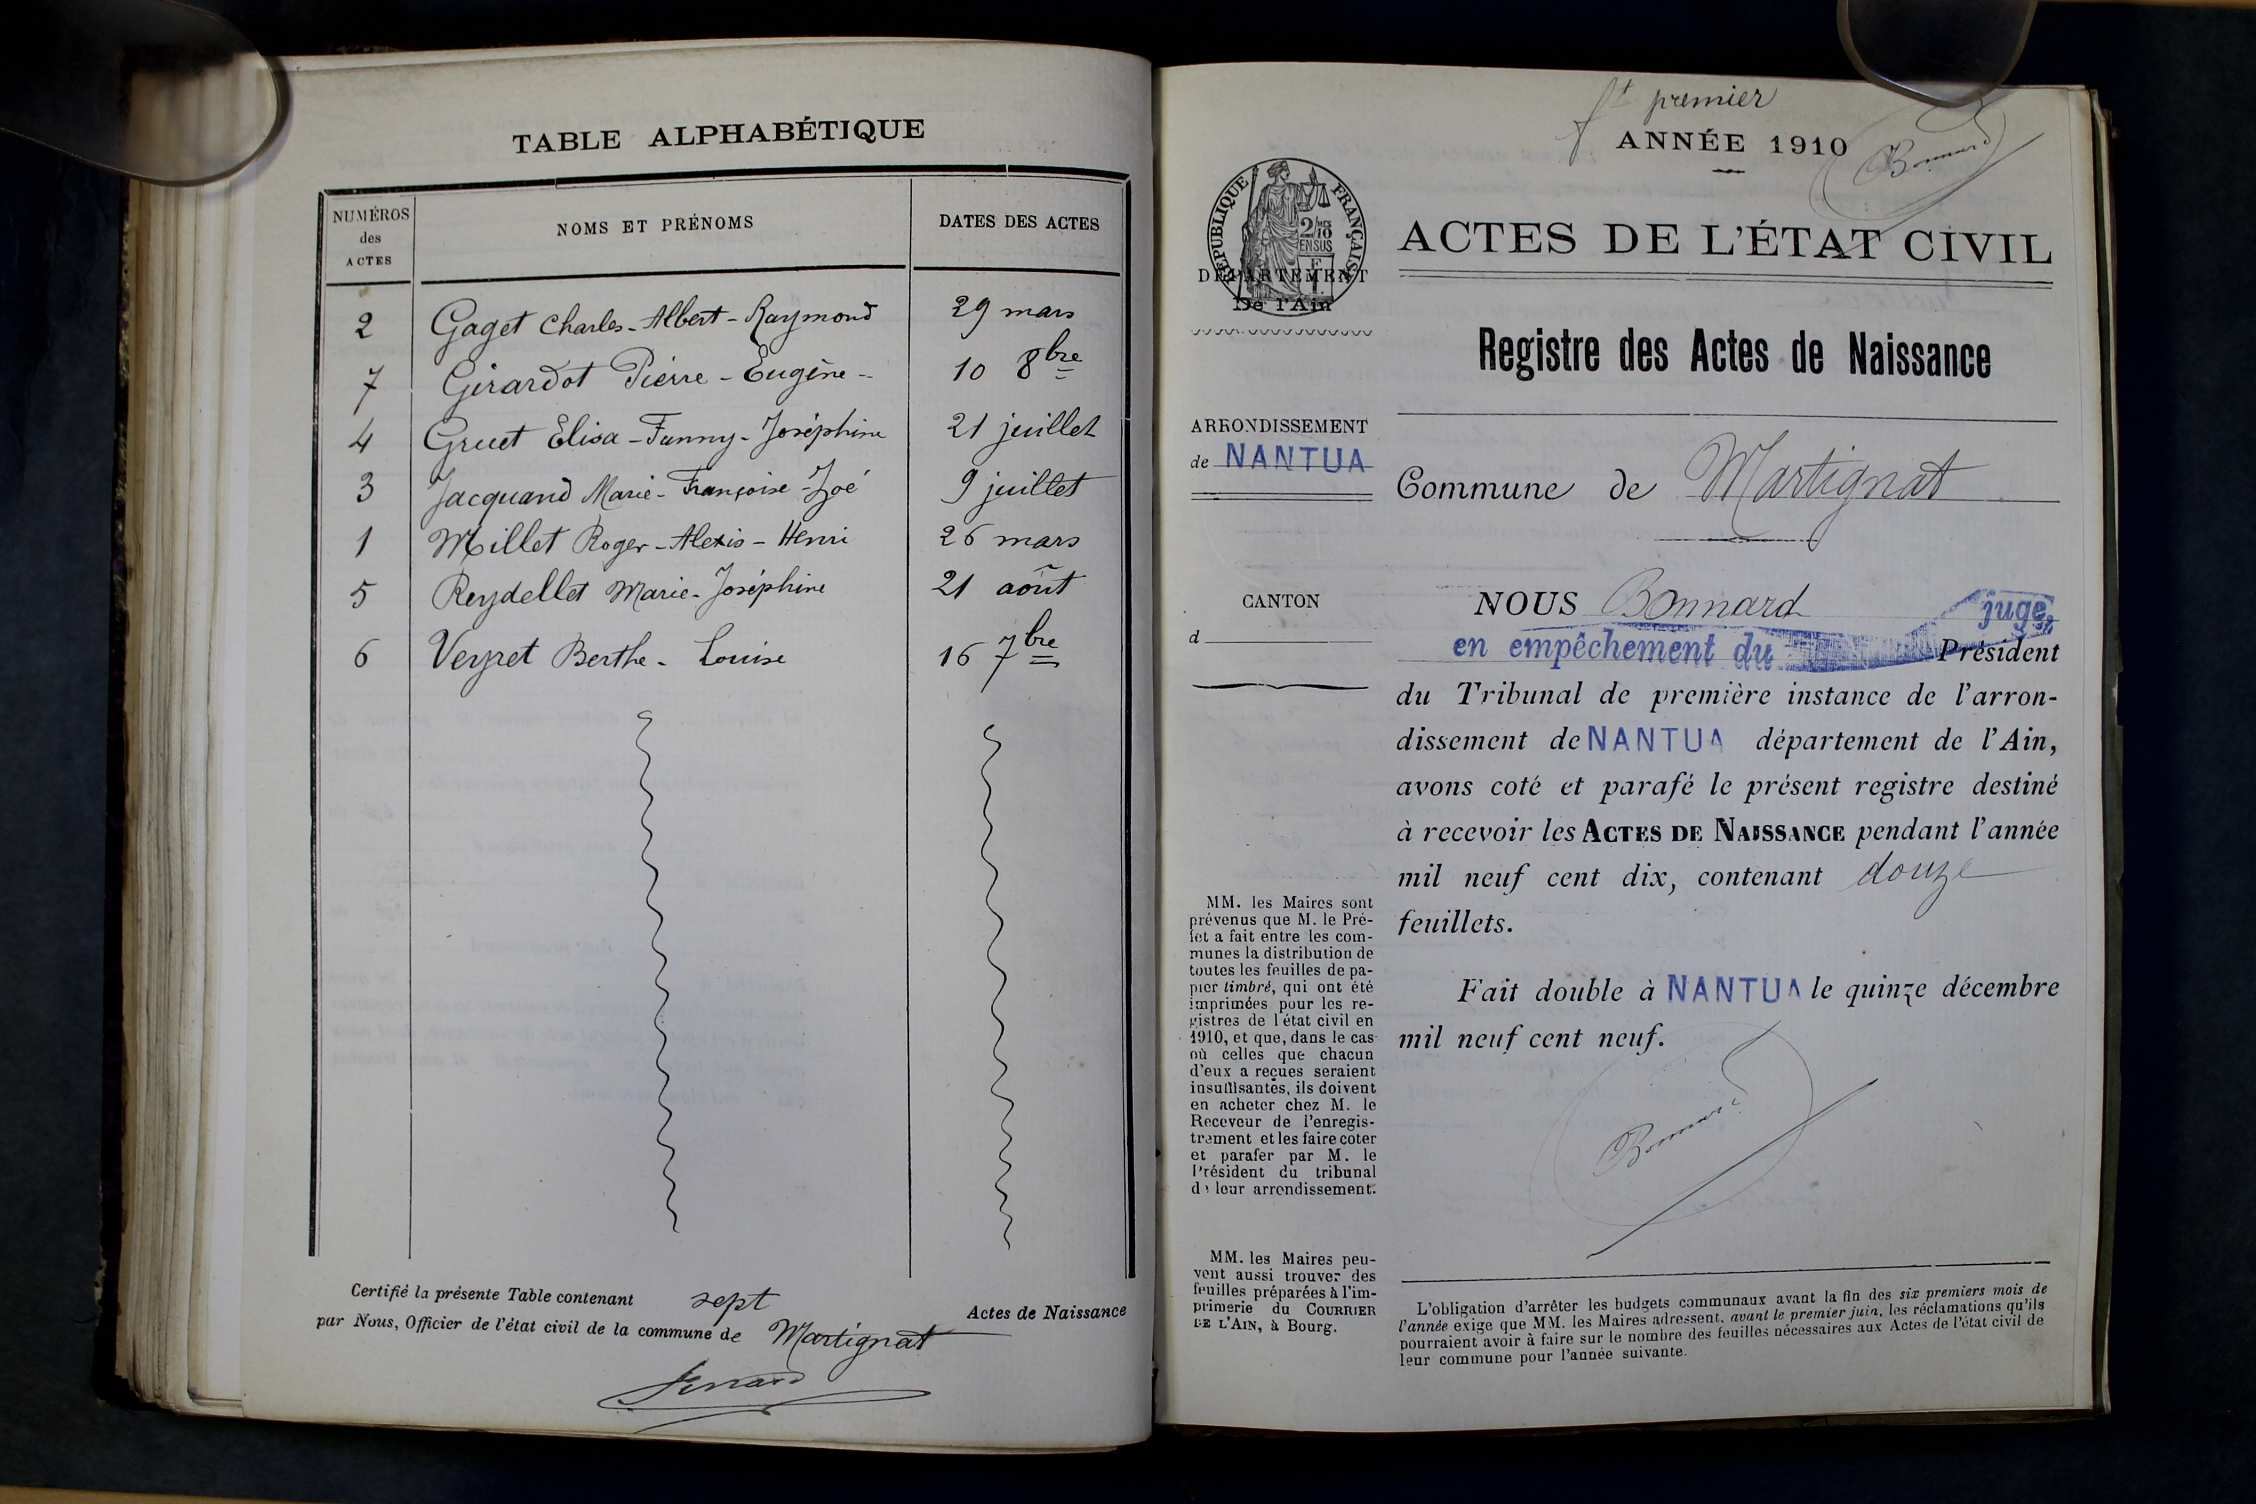 TABLE ALPHABÉTIQUE
NUMÉROS
des
ACTES
NOMS ET PRÉNOMS
DATES DES ACTES
2 Gaget Charles-Albert-Raymond 29 mars
7 Girardot Pierre-Eugène- 10 8bre
4 Gruet Elisa-Fanny-Joséphine 21 juillet
3 Jacquand Marie-Françoise-Zoé 9 juillet
1 Millet Roger-Alexis-Henri 26 mars
5 Reydellet Marie-Joséphine 21 août
6 Veyret Berthe-Louise 16 7bre
Certifié la présente Table contenant sept Actes de Naissance
par Nous, Officier de l'état civil de la commune de Martignat
ft premier
ANNÉE 1910
Bonnard
RÉPUBLIQUE FRANÇAISE
2/10
EN SUS
DÉPARTEMENT
De l'Ain
ACTES DE L'ÉTAT CIVIL
Registre des Actes de Naissance
ARRONDISSEMENT
de NANTUA
Commune de Martignat
CANTON
d
NOUS Bonnard juge
en empêchement du Président
du Tribunal de première instance de l'arron-
dissement de NANTUA département de l'Ain,
avons coté et parafé le présent registre destiné
à recevoir les ACTES DE NAISSANCE pendant l'année
mil neuf cent dix, contenant douze
feuillets.
Fait double à NANTUA le quinze décembre
mil neuf cent neuf.
Bonnard
MM. les Maires sont
prévenus que M. le Pré-
fet a fait entre les com-
munes la distribution de
toutes les feuilles de pa-
pier timbré, qui ont été
imprimées pour les re-
gistres de l'état civil en
1910, et que, dans le cas
où celles que chacun
d'eux a reçues seraient
insuffisantes, ils doivent
en acheter chez M. le
Receveur de l'enregis-
trement et les faire coter
et parafer par M. le
Président du tribunal
de leur arrondissement.
MM. les Maires peu-
vent aussi trouver des
feuilles préparées à l'im-
primerie du COURRIER
DE L'AIN, à Bourg.
L'obligation d'arrêter les budgets communaux avant la fin des six premiers mois de
l'année exige que MM. les Maires adressent, avant le premier juin, les réclamations qu'ils
pourraient avoir à faire sur le nombre des feuilles nécessaires aux Actes de l'état civil de
leur commune pour l'année suivante.